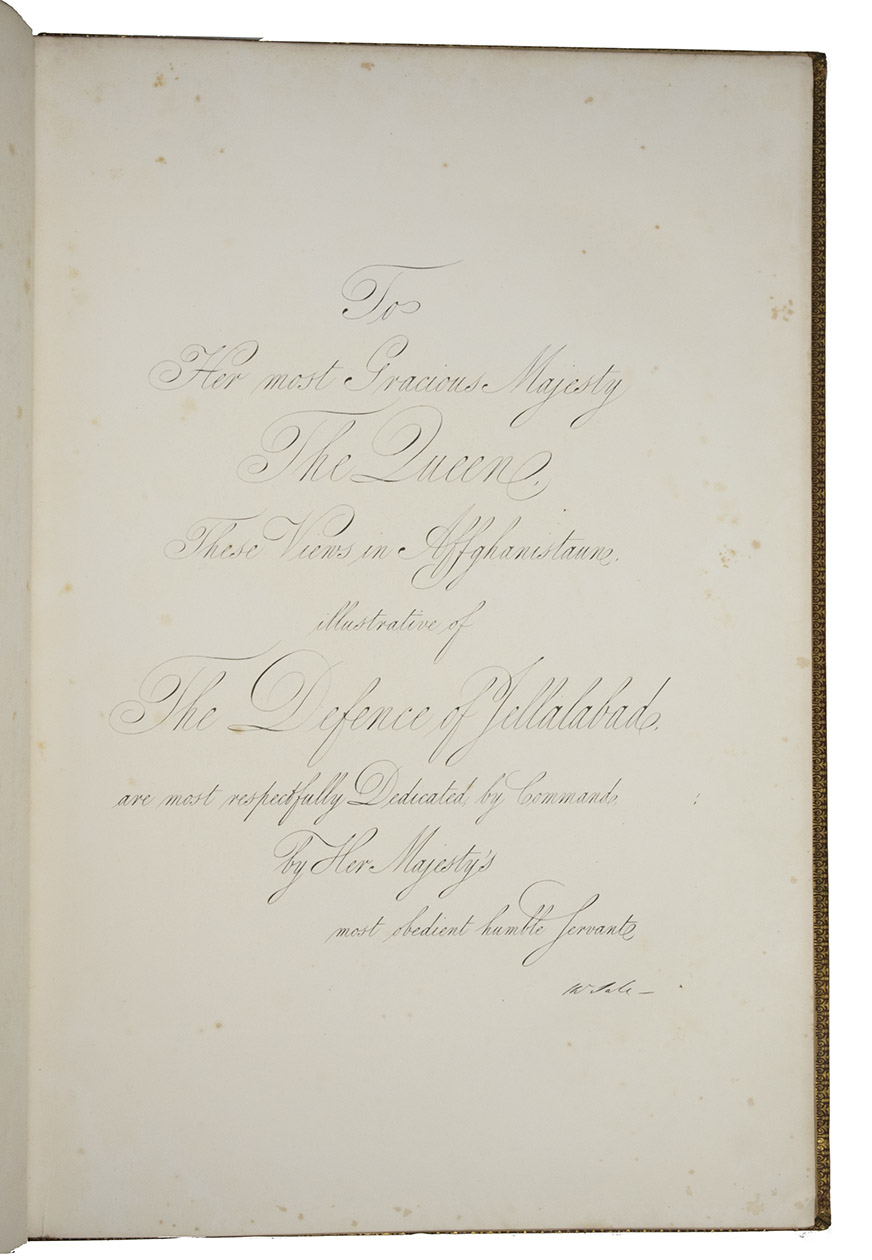 To
Her most Gracious Majesty
The Queen,
These Views in Affghanistaun,
illustrative of
The Defence of Jellalabad,
are most respectfully Dedicated, by Command,
by Her Majesty's
most obedient humble Servant,
W Sale